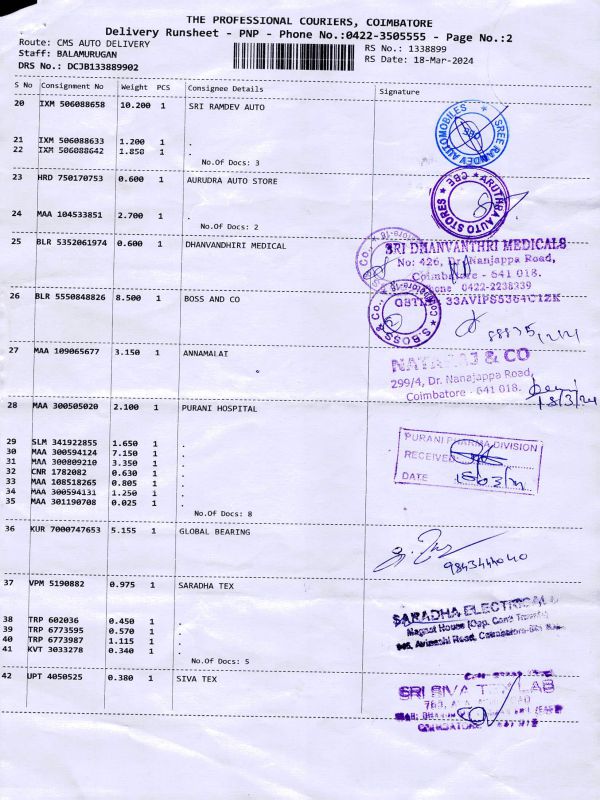 THE PROFESSIONAL COURIERS, COIMBATORE
Delivery Runsheet - PNP - Phone No.:0422-3505555 - Page No.:2
Route: CMS AUTO DELIVERY
RS No.: 1338899
Staff: BALAMURUGAN
RS Date: 18-Mar-2024
DRS No.: DCJB133889902
S No Consignment No Weight PCS Consignee Details Signature
20 IXM 506088658 10.200 1 SRI RAMDEV AUTO
SREE RAMDEV AUTOMOBILES
21 IXM 506088633 1.200 1 .
22 IXM 506088642 1.850 1 .
No.Of Docs: 3
23 HRD 750170753 0.600 1 AURUDRA AUTO STORE
ARUTHRA AUTO STORES CBE
24 MAA 104533851 2.700 1 .
No.Of Docs: 2
25 BLR 5352061974 0.600 1 DHANVANDHIRI MEDICAL
SRI DHANVANTHRI MEDICALS
No: 426, Dr. Nanjappa Road,
Coimbatore - 641 018.
Phone 0422-2238339
26 BLR 5550848826 8.500 1 BOSS AND CO
S.BOSS & Co., Coimbatore-18
27 MAA 109065677 3.150 1 ANNAMALAI
NATARAJ & CO
299/4, Dr. Nanajappa Road,
Coimbatore - 641 018.
18/3/24
28 MAA 300505020 2.100 1 PURANI HOSPITAL
PURANI PHARMA DIVISION
RECEIVED
DATE
29 SLM 341922855 1.650 1 .
30 MAA 300594124 7.150 1 .
31 MAA 300809210 3.350 1 .
32 CNR 1782082 0.630 1 .
33 MAA 108518265 0.805 1 .
34 MAA 300594131 1.250 1 .
35 MAA 301190708 0.025 1 .
No.Of Docs: 8
36 KUR 7000747653 5.155 1 GLOBAL BEARING
9843444040
37 VPM 5190882 0.975 1 SARADHA TEX
SARADHA ELECTRICALS
38 TRP 602036 0.450 1 .
39 TRP 6773595 0.570 1 .
40 TRP 6773987 1.115 1 .
41 KVT 3033278 0.340 1 .
No.Of Docs: 5
42 UPT 4050525 0.380 1 SIVA TEX
SRI SIVA TEX LAB